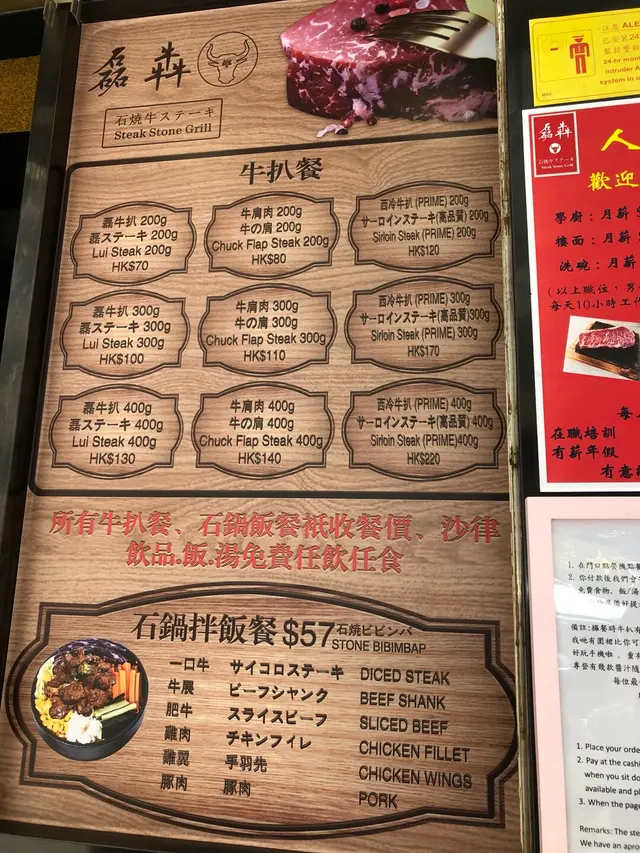 磊犇
石焼牛ステーキ
Steak Stone Grill
牛扒餐
磊牛扒 200g
磊ステーキ 200g
Lui Steak 200g
HK$70
牛肩肉 200g
牛の肩 200g
Chuck Flap Steak 200g
HK$80
西冷牛扒 (PRIME) 200g
サーロインステーキ(高品質) 200g
Sirloin Steak (PRIME) 200g
HK$120
磊牛扒 300g
磊ステーキ 300g
Lui Steak 300g
HK$100
牛肩肉 300g
牛の肩 300g
Chuck Flap Steak 300g
HK$110
西冷牛扒 (PRIME) 300g
サーロインステーキ(高品質)300g
Sirloin Steak (PRIME) 300g
HK$170
磊牛扒 400g
磊ステーキ 400g
Lui Steak 400g
HK$130
牛肩肉 400g
牛の肩 400g
Chuck Flap Steak 400g
HK$140
西冷牛扒 (PRIME) 400g
サーロインステーキ(高品質) 400g
Sirloin Steak (PRIME)400g
HK$220
所有牛扒餐、石鍋飯餐衹收餐價、沙律
飲品.飯.湯免費任飲任食
石鍋拌飯餐 $57 石焼ビビンバ
STONE BIBIMBAP
一口牛 サイコロステーキ DICED STEAK
牛展 ビーフシャンク BEEF SHANK
肥牛 スライスビーフ SLICED BEEF
雞肉 チキンフィレ CHICKEN FILLET
雞翼 手羽先 CHICKEN WINGS
豚肉 豚肉 PORK
注意 ALE
已安裝24
監控警
24-hr mon
intruder A
system in o
磊犇
石焼牛ステーキ
Steak Stone Grill
人
歡迎
學廚：月薪
樓面：月薪
洗碗：月薪
(以上職位，男
每天10小時工作
每
在職培訓
有薪年假
有意
1. 在門口點餐機點餐
2. 你付款後我們會
免費食物，飯/湯
備註：攞餐時牛扒有
我哋有圍裙比你可
好玩手機啦．重有
專登有幾款醬汁隨
每位最
1. Place your orde
2. Pay at the cashi
when you sit do
available and pl
3. When the page
Remarks: The ste
We have an apro